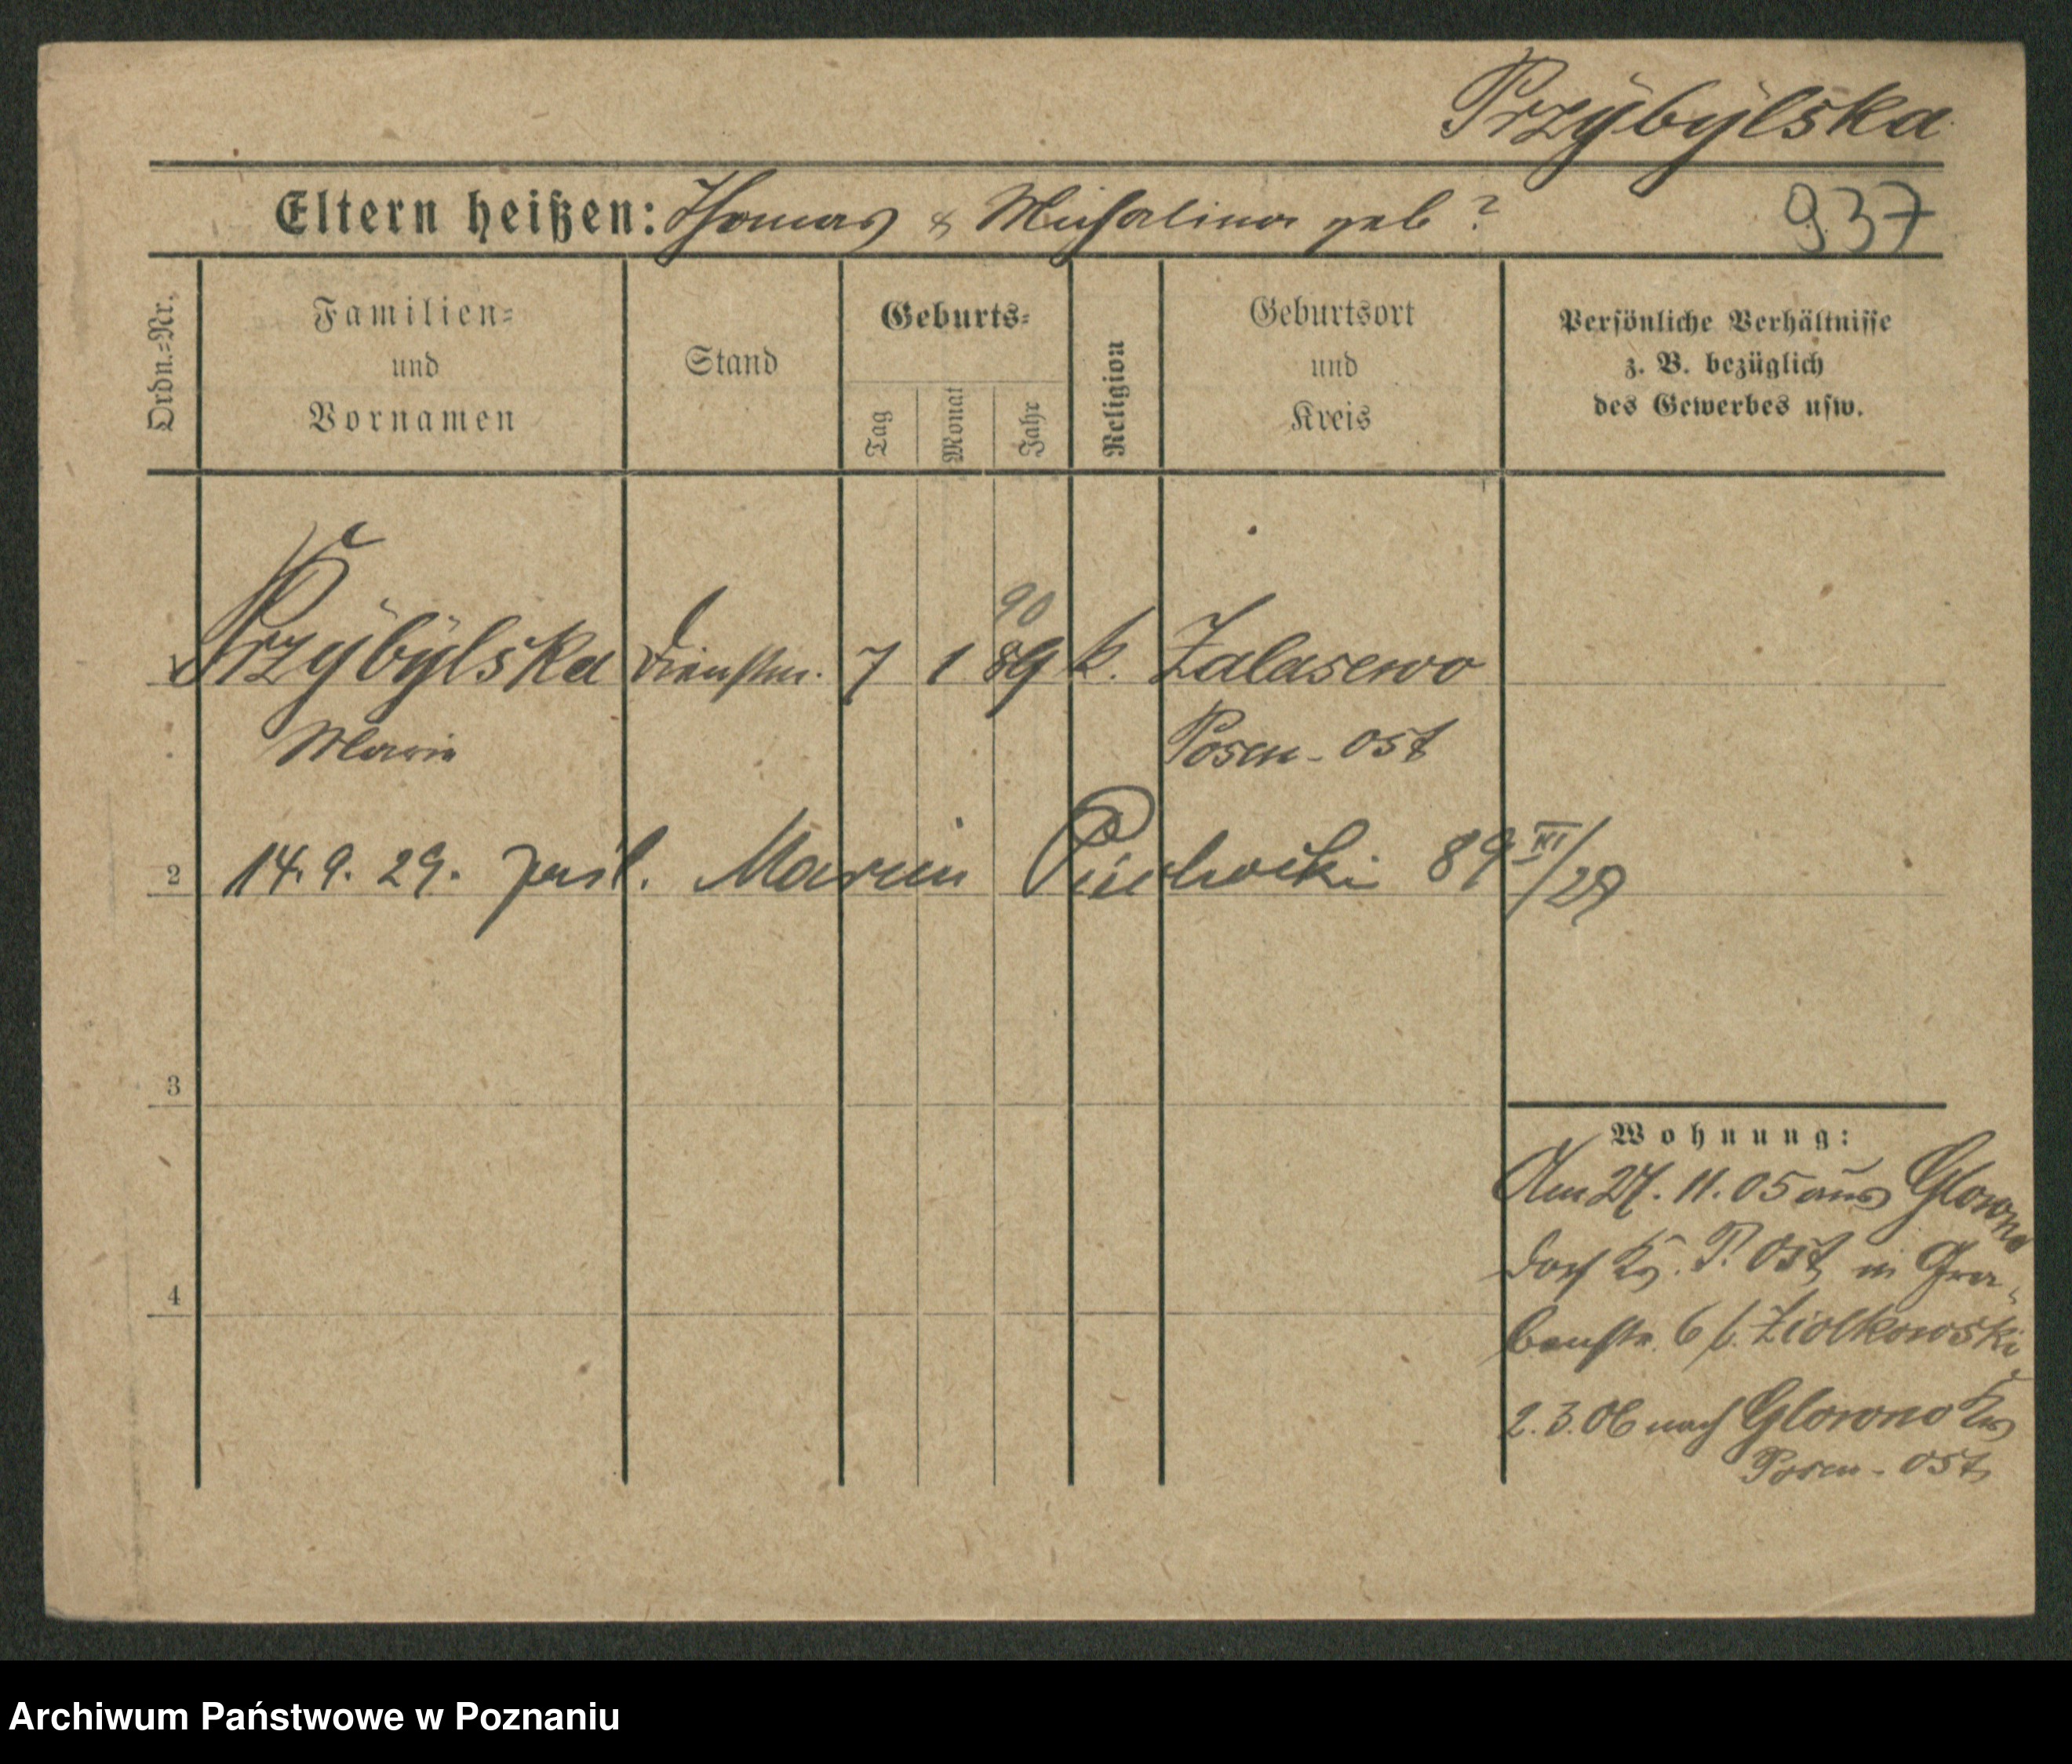 Przybylska
Eltern heißen: Thomas & Michalina geb ?
937
Ordn.=Nr.
Familien=
und
Vornamen
Stand
Geburts=
Tag
Monat
Jahr
Religion
Geburtsort
und
Kreis
Persönliche Verhältnisse
z. B. bezüglich
des Gewerbes usw.
90
Przybylska Dienstm. 7 1 89 k. Zalasewo
Marie Posen-Ost
2 14. 9. 29. zaśl. Marcin 89 XI/29
3
Wohnung:
Am 27. 11. 05 aus Glowno
Dorf Krs. P. Ost in Gra-
benstr. 6 b. Ziolkowski
4
2. 3. 06 nach Glowno Krs
Posen-Ost
Archiwum Państwowe w Poznaniu